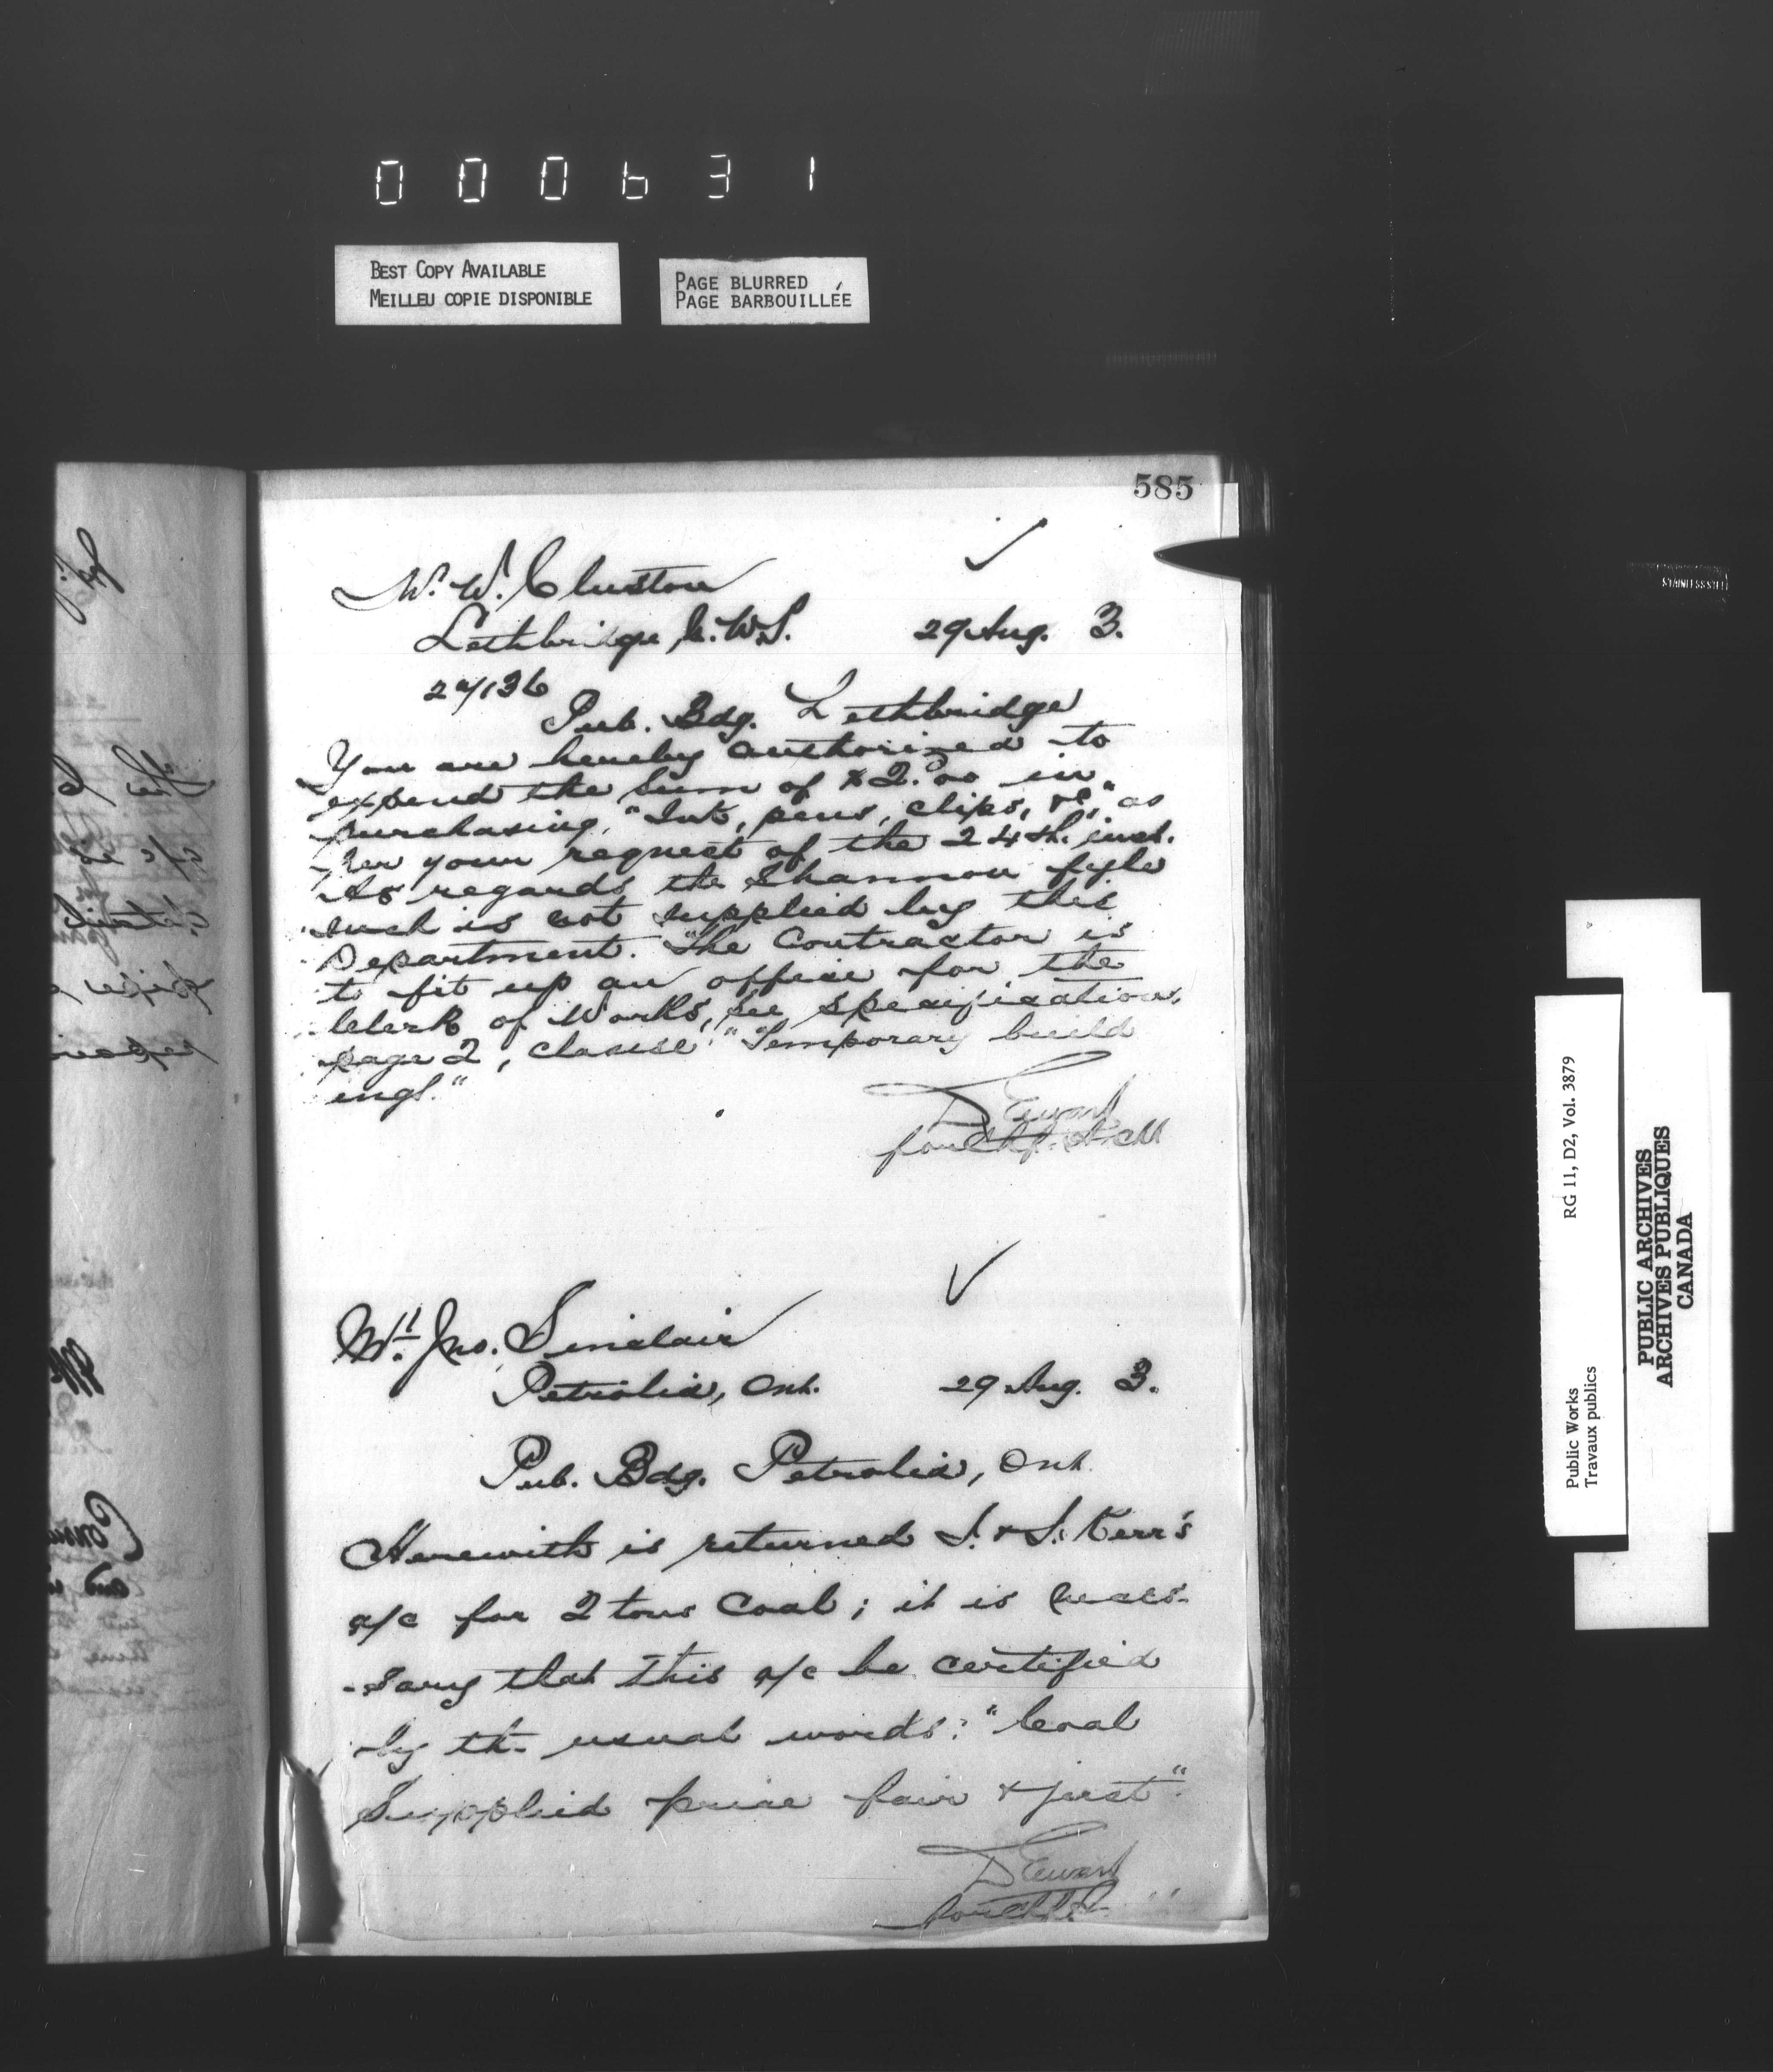 000631
BEST COPY AVAILABLE
MEILLEU COPIE DISPONIBLE
PAGE BLURRED
PAGE BARBOUILLÉE
585
W. Cluston
Lethbridge, 29 Aug. 3.
Pub. Bdg. Lethbridge
You are hereby authorized to
expend the sum of $2.00 in
purchasing, "Ink, pens, clips, &c," as
per your request of the 24th. inst.
As regards the Shannon fyle
such is not supplied by this
Department. The Contractor is
to fit up an office for the
Clerk of Works, see specification,
page 2, clause "Temporary build
ings."
D Ewart
for Chf.
Mr. Jno. Sinclair
Petrolia, Ont. 29 Aug. 3.
Pub. Bdg. Petrolia, Ont.
Herewith is returned J. & J. Kerr's
a/c for 2 tons Coal; it is neces-
-sary that this a/c be certified
by th. usual words: "Coal
Supplied price fair & just".
D Ewart
RG 11, D2, Vol. 3879
Public Works
Travaux publics
PUBLIC ARCHIVES
ARCHIVES PUBLIQUES
CANADA